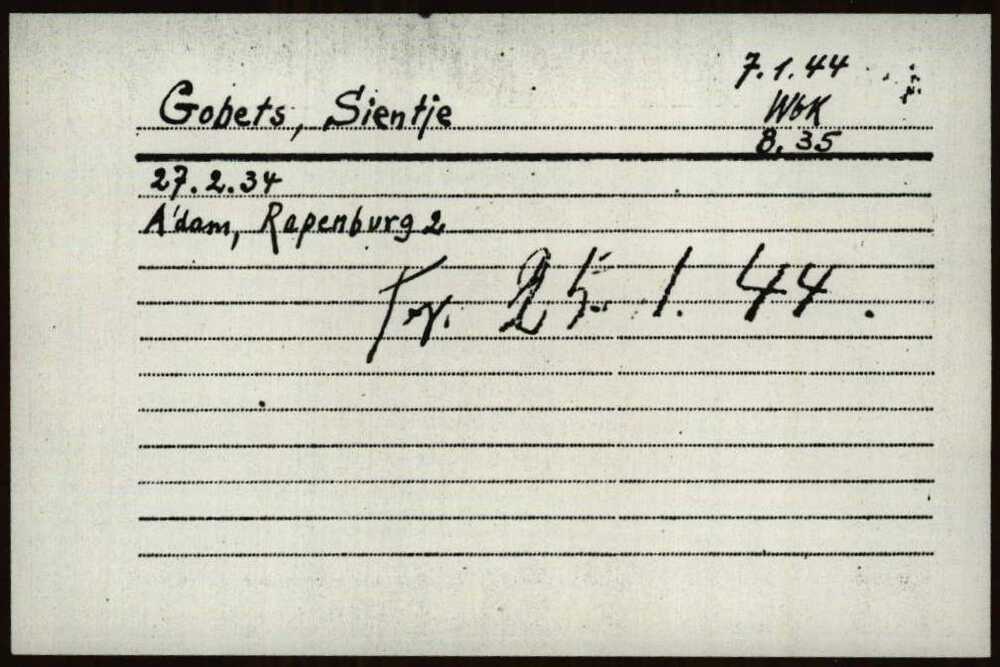 7.1.44
Gobets, Sientje
WbK
8.35
27.2.34
A'dam, Rapenburg 2
Tr. 25.1.44.